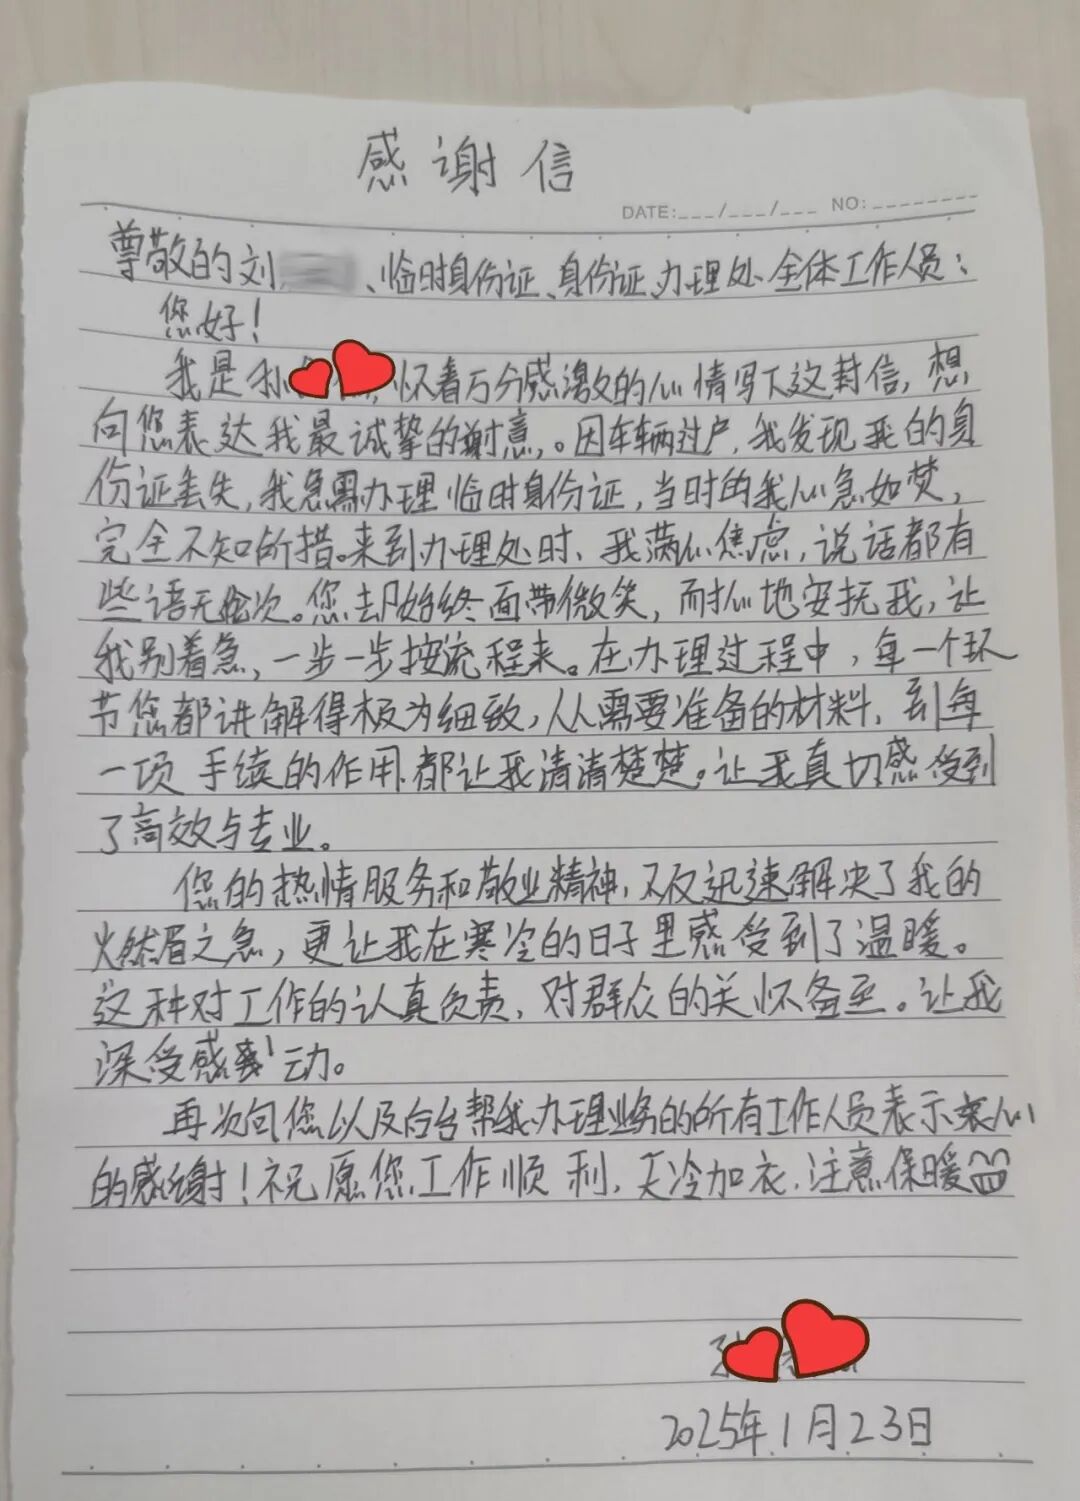 感谢信
DATE:___/___/___ NO:________
尊敬的刘、临时身份证、身份证办理处全体工作人员：
您好！
我是孙，怀着万分感激的心情写下这封信，想
向您表达我最诚挚的谢意。因车辆过户，我发现我的身
份证丢失，我急需办理临时身份证，当时的我心急如焚，
完全不知所措。来到办理处时、我满心焦虑，说话都有
些语无伦次。您却始终面带微笑，耐心地安抚我，让
我别着急，一步一步按流程来。在办理过程中，每一个环
节您都讲解得极为细致，从需要准备的材料，到每
一项手续的作用都让我清清楚楚。让我真切感受到
了高效与专业。
您的热情服务和敬业精神，不仅迅速解决了我的
火燃眉之急，更让我在寒冷的日子里感受到了温暖。
这种对工作的认真负责，对群众的关怀备至。让我
深受感动。
再次向您以及后台帮我办理业务的所有工作人员表示衷心
的感谢！祝愿您工作顺利，天冷加衣，注意保暖
2025年1月23日